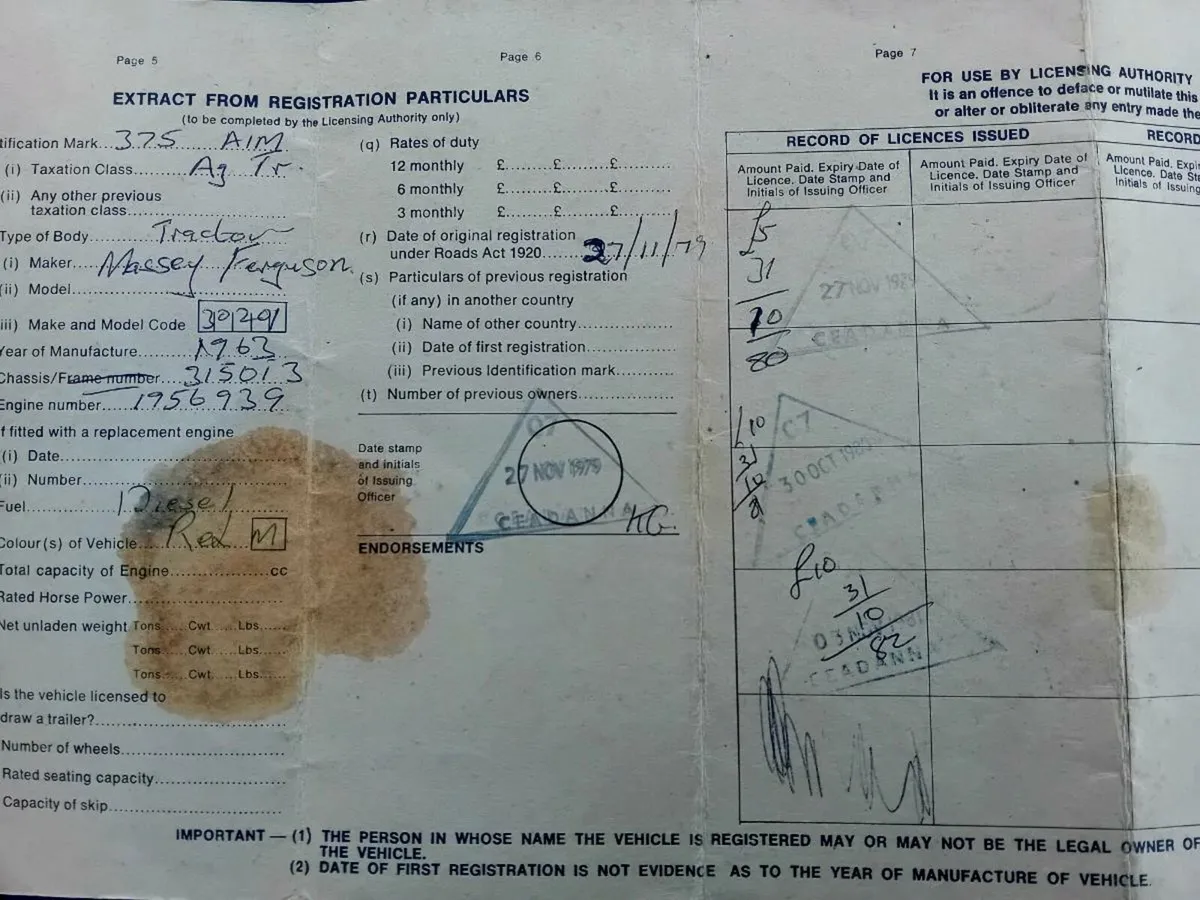 Page 5
EXTRACT FROM REGISTRATION PARTICULARS
(to be completed by the Licensing Authority only)
tification Mark...375 AIM
(i) Taxation Class...Ag Tr.
(ii) Any other previous
taxation class...
Type of Body...Tractor
(i) Maker...Massey Ferguson
(ii) Model...
iii) Make and Model Code
Year of Manufacture...1963
Chassis/Frame number...315013
Engine number...1956939
f fitted with a replacement engine
(i) Date...
(ii) Number...
Fuel...Diesel
Colour(s) of Vehicle...Red M
Total capacity of Engine...cc
Rated Horse Power...
Net unladen weight Tons...Cwt...Lbs...
Tons...Cwt...Lbs...
Tons...Cwt...Lbs...
Is the vehicle licensed to
draw a trailer?...
Number of wheels...
Rated seating capacity...
Capacity of skip...
Page 6
(q) Rates of duty
12 monthly £...£...£...
6 monthly £...£...£...
3 monthly £...£...£...
(r) Date of original registration
under Roads Act 1920...27/11/79
(s) Particulars of previous registration
(if any) in another country
(i) Name of other country...
(ii) Date of first registration...
(iii) Previous Identification mark...
(t) Number of previous owners...
Date stamp
and initials
of Issuing
Officer
C7
27 NOV 1979
CEADANNA
HG.
ENDORSEMENTS
Page 7
FOR USE BY LICENSING AUTHORITY
It is an offence to deface or mutilate this
or alter or obliterate any entry made the
RECORD OF LICENCES ISSUED
RECORD
Amount Paid. Expiry Date of
Licence. Date Stamp and
Initials of Issuing Officer
Amount Paid. Expiry Date of
Licence. Date Stamp and
Initials of Issuing Officer
Amount Paid. Expi
Licence. Date Sta
Initials of Issuing
£5
31
10
80
27 NOV 197
CEADANNA
10
31
10
C7
30 OCT 1980
£10
31
10
82
03
CEADANN
IMPORTANT — (1) THE PERSON IN WHOSE NAME THE VEHICLE IS REGISTERED MAY OR MAY NOT BE THE LEGAL OWNER OF
THE VEHICLE.
(2) DATE OF FIRST REGISTRATION IS NOT EVIDENCE AS TO THE YEAR OF MANUFACTURE OF VEHICLE.